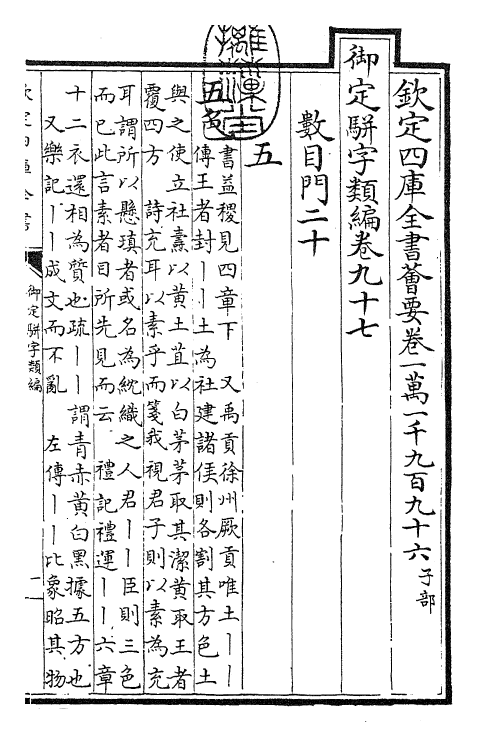 欽定四庫全書薈要卷一萬一千九百九十六子部
御定駢字類編卷九十七
數目門二十
五
五色
書益稷見四章下　又禹貢徐州厥貢唯土丨丨
傳王者封丨丨土為社建諸侯則各割其方色土
與之使立社燾以黃土苴以白茅茅取其潔黃取王者
覆四方　詩充耳以素乎而箋我視君子則以素為充
耳謂所以懸瑱者或名為紞織之人君丨丨臣則三色
而已此言素者目所先見而云　禮記禮運丨丨六章
十二衣還相為質也疏丨丨謂青赤黃白黑據五方也
又樂記丨丨成文而不亂　左傳丨丨比象昭其物
御定駢字類編
一